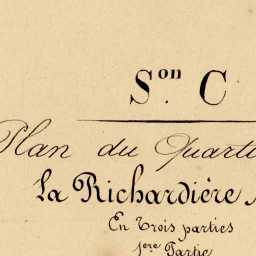 Son. C
Plan du Quarti
La Richardière
En trois parties
1ère Partie